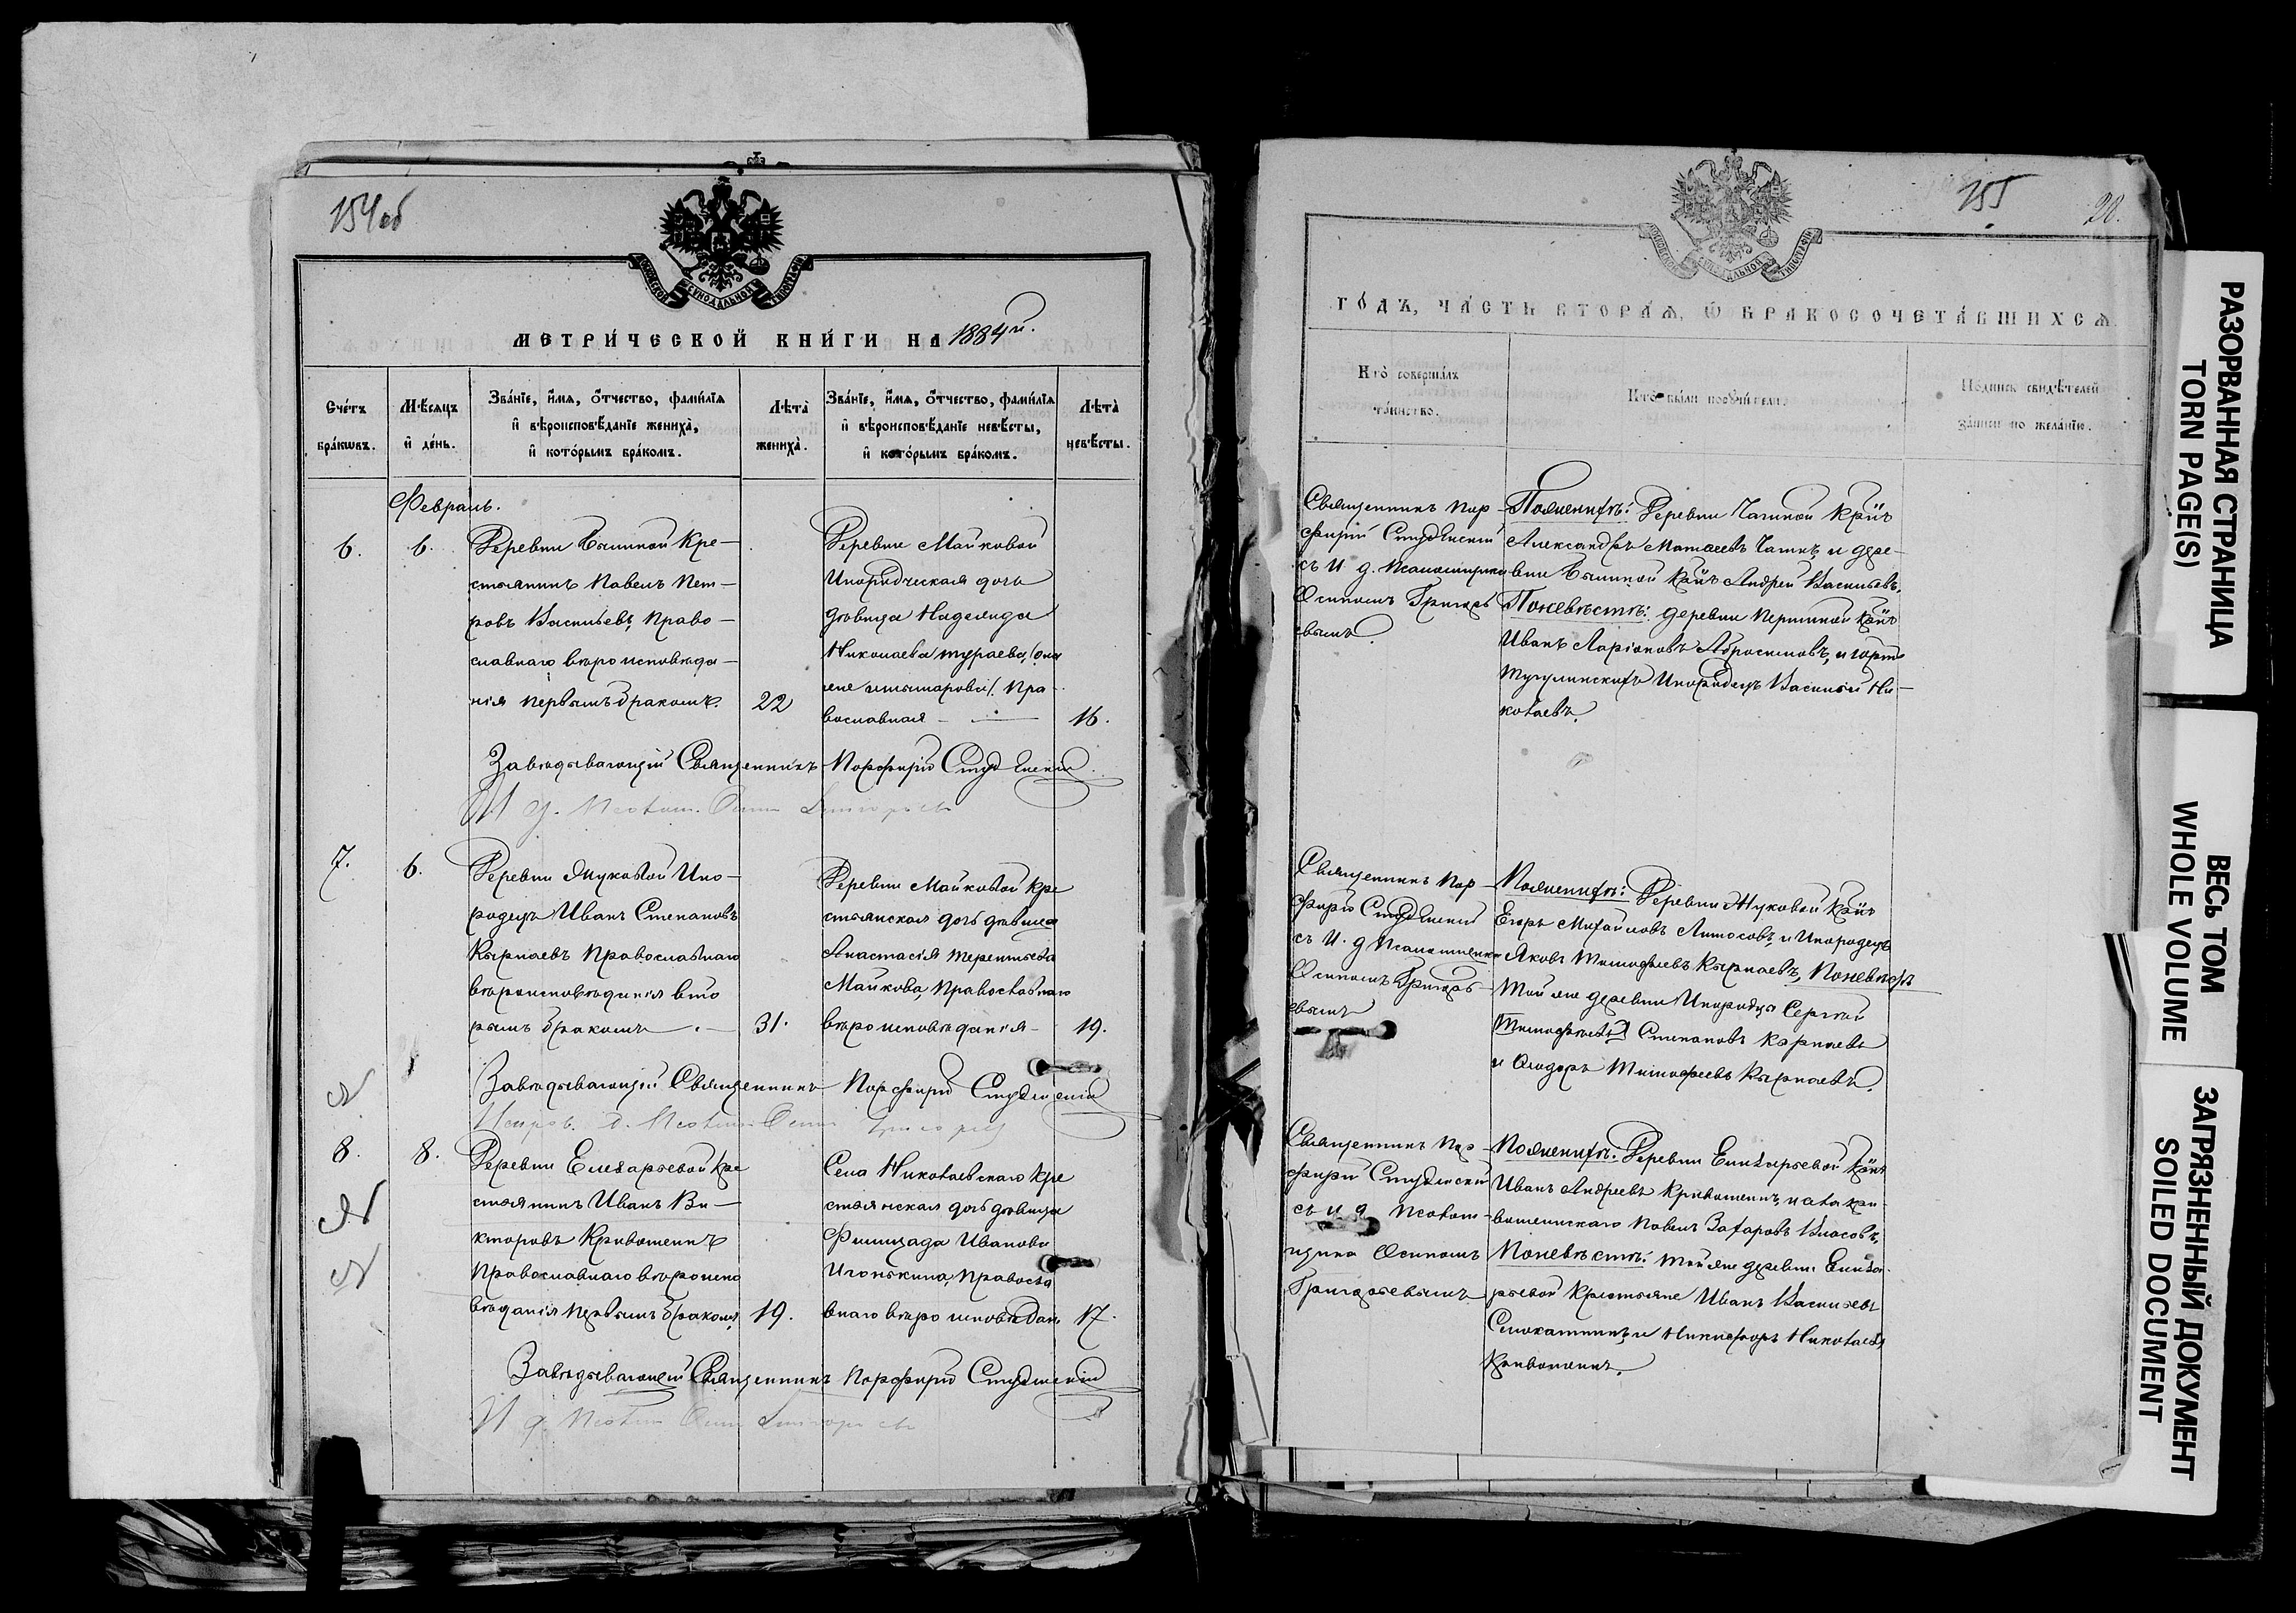 154об
МОСКОВСКОЙ СУНОДАЛЬНОЙ ТИПОГРАФІИ
МЕТРИЧЕСКОЙ КНИГИ НА 1884й.
Счетъ браковъ.
Мѣсяцъ и день.
Званіе, имя, отчество, фамилія
и вѣроисповѣданіе жениха,
и которымъ бракомъ.
Лѣта жениха.
Званіе, имя, отчество, фамилія
и вѣроисповѣданіе невѣсты,
и которымъ бракомъ.
Лѣта невѣсты.
Февраль.
6.
6.
Деревни Кре-
стьянинъ Павелъ Пет-
ровъ Васильевъ, Право-
славнаго вѣроисповѣда-
нія первымъ бракомъ.
22
Деревни Майковой
Инородческая дочь
дѣвица Надежда
Николаева Тураева, (она
же Прa-
вославная
16.
Завѣдывающій Священникъ Порфирій Студенскій
И д. Псалом.
7.
6.
Деревни Жуковой Ино-
родецъ Иванъ Степановъ
Кырпаевъ Православнаго
вѣроисповѣданія вто
рымъ бракомъ
31.
Деревни Майковой кре
стьянская дочь дѣвица
Анастасія Терентьева
Майкова, Православнаго
вѣроисповѣданія
19.
Завѣдывающій Священникъ Порфирій Студенскій
8.
8.
Деревни Елизарьевой кре
стьянинъ Иванъ Ви-
кторовъ Кривошеинъ
Православнаго вѣроиспо
вѣданія первымъ бракомъ,
19.
Села Николаевскаго кре
стьянская дочь дѣвица
Филицада Иванова
Игонькина, Правосла
внаго вѣроисповѣдан.
17.
Завѣдывающій Священникъ Порфирій Студенскій
И д. Псалом.
155
20.
МОСКОВСКОЙ СУНОДАЛЬНОЙ ТИПОГРАФІИ
ГОДЪ, ЧАСТЬ ВТОРАЯ, Ѡ БРАКОСОЧЕТАВШИХСЯ.
Кто совершалъ таинство.
Кто были поручители.
Подпись свидѣтелей записи по желанію.
Священникъ Пор-
фирій Студенскій
съ И д. Псаломщика
Осипомъ Григорь
евымъ.
Поженихѣ: Деревни Чагиной Крнъ
Александръ Матвеевъ Чагинъ, и дере-
вни Крнъ Андрей Васильевъ.
Поневѣстѣ: деревни Першиной крнъ
Иванъ Ларіоновъ Абросимовъ, и
Тугулинскихъ Инородецъ Василій Ни-
колаевъ.
Священникъ Пор-
фирій Студенскій
съ И. д Псаломщика
Осипомъ Григорь-
евымъ
Поженихѣ: Деревни Жуковой крнъ
Егоръ Михайловъ Антоновъ, и Инородецъ
Яковъ Тимофеевъ Кырпаевъ, Поневѣстѣ
Той же деревни Инородцы Сергѣй
Степановъ Карпаевъ
и Ѳеодоръ Тимофеевъ Кырпаевъ.
Священникъ Пор-
фирій Студенскій
съ и д Псалом-
щика Осипомъ
Григорьевымъ
Поженихѣ: Деревни Елизарьевой крнъ
Иванъ Андреевъ Кривошеинъ, и села Кри-
вошеинскаго Павелъ Захаровъ Власовъ,
Поневѣстѣ: той же деревни Елиза-
рьевой Крестьяне Иванъ Васильевъ
и Никифоръ Николаевъ
Кривошеинъ.
РАЗОРВАННАЯ СТРАНИЦА
TORN PAGE(S)
ВЕСЬ ТОМ
WHOLE VOLUME
ЗАГРЯЗНЕННЫЙ ДОКУМЕНТ
SOILED DOCUMENT